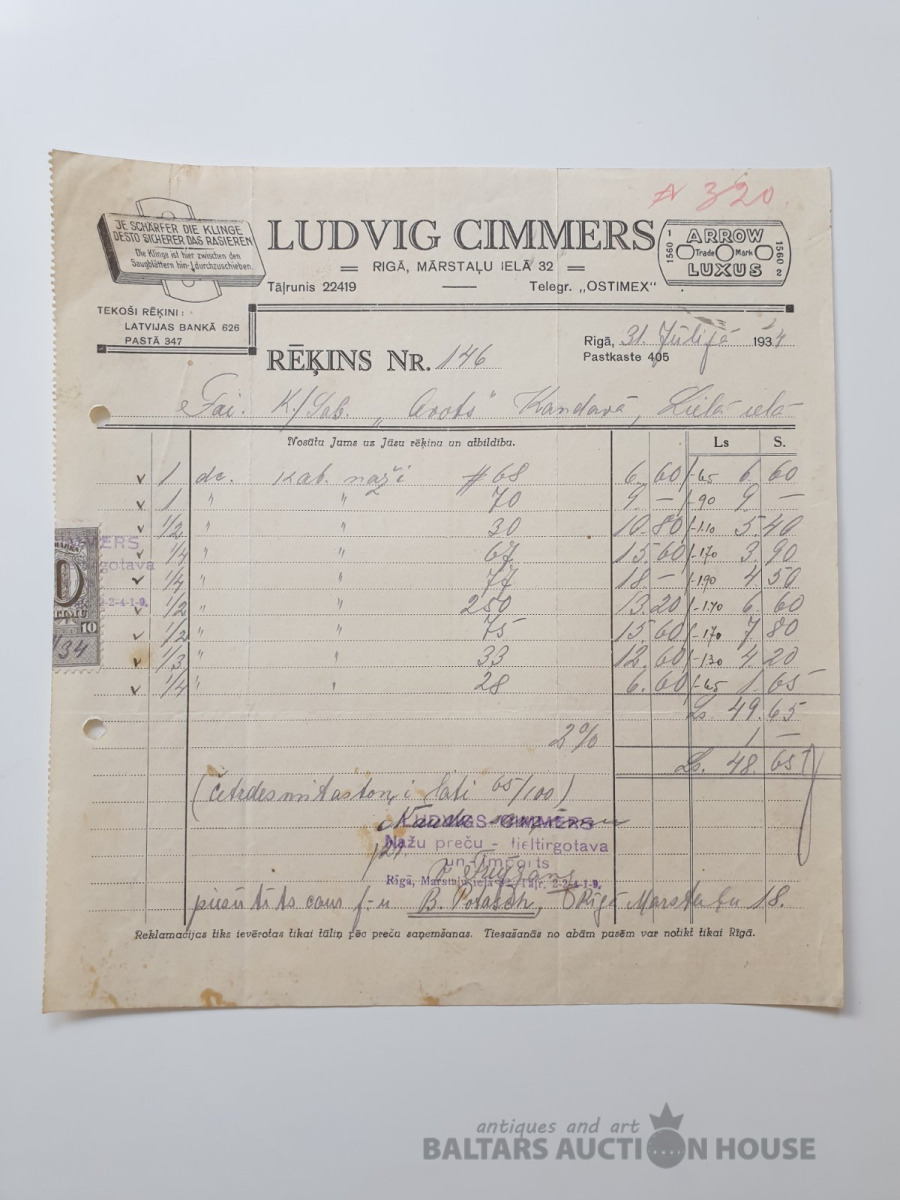 A 320
JE SCHÄRFER DIE KLINGE
DESTO SICHERER DAS RASIEREN
Die Klinge ist hier zwischen den
Saugblättern hindurchzuschieben.
LUDVIG CIMMERS
RIGĀ, MĀRSTAĻU IELĀ 32
Tāļrunis 22419 Telegr. „OSTIMEX"
1560 1
ARROW
Trade Mark
LUXUS
1560 2
TEKOŠI RĒĶINI:
LATVIJAS BANKĀ 626
PASTĀ 347
RĒĶINS NR. 146
Rīgā, 31. Jūlijā 1934
Pastkaste 405
Fai. K/Sab. „Avots" Kandavā, Lielā ielā
Nosūtu Jums uz Jūsu rēķina un atbildību. Ls S.
v 1 dc. kab. naži #68 6. 60 /-65 6. 60
v 1 " " 70 9 – /-90 9. –
v 1/2 " " 30 10. 80 /-1.10 5. 40
1/4 " " 67 15. 60 /-1.70 3. 90
v 1/4 " " 77 18. – /-1.90 4. 50
v 1/2 " " 250 13. 20 /-1.40 6. 60
v 1/2 " " 75 15. 60 /-1.70 7. 80
v 1/3 " " 33 12. 60 /-1.30 4. 20
v 1/4 " " 28 6. 60 /-65 1. 65
Ls 49. 65
2% 1 –
Ls. 48. 65
(četrdesmitastoņi lati 65/100)
Nauda saņēmu
LUDVIGS CIMMERS
Nažu preču - lieltirgotava
un imports
Rīgā, Marstaļu ielā Tāļr. 2-2-4-1-9.
piesūtīts caur f-u B. Potasch, Rīgā Marstaļu 18.
Reklamācijas tiks ievērotas tikai tūliņ pēc preču saņemšanas. Tiesāšanās no abām pusēm var notikt tikai Rīgā.
MERS
rgotava
2-2-4-1-9.
0
10
/34
antiques and art
BALTARS AUCTION HOUSE